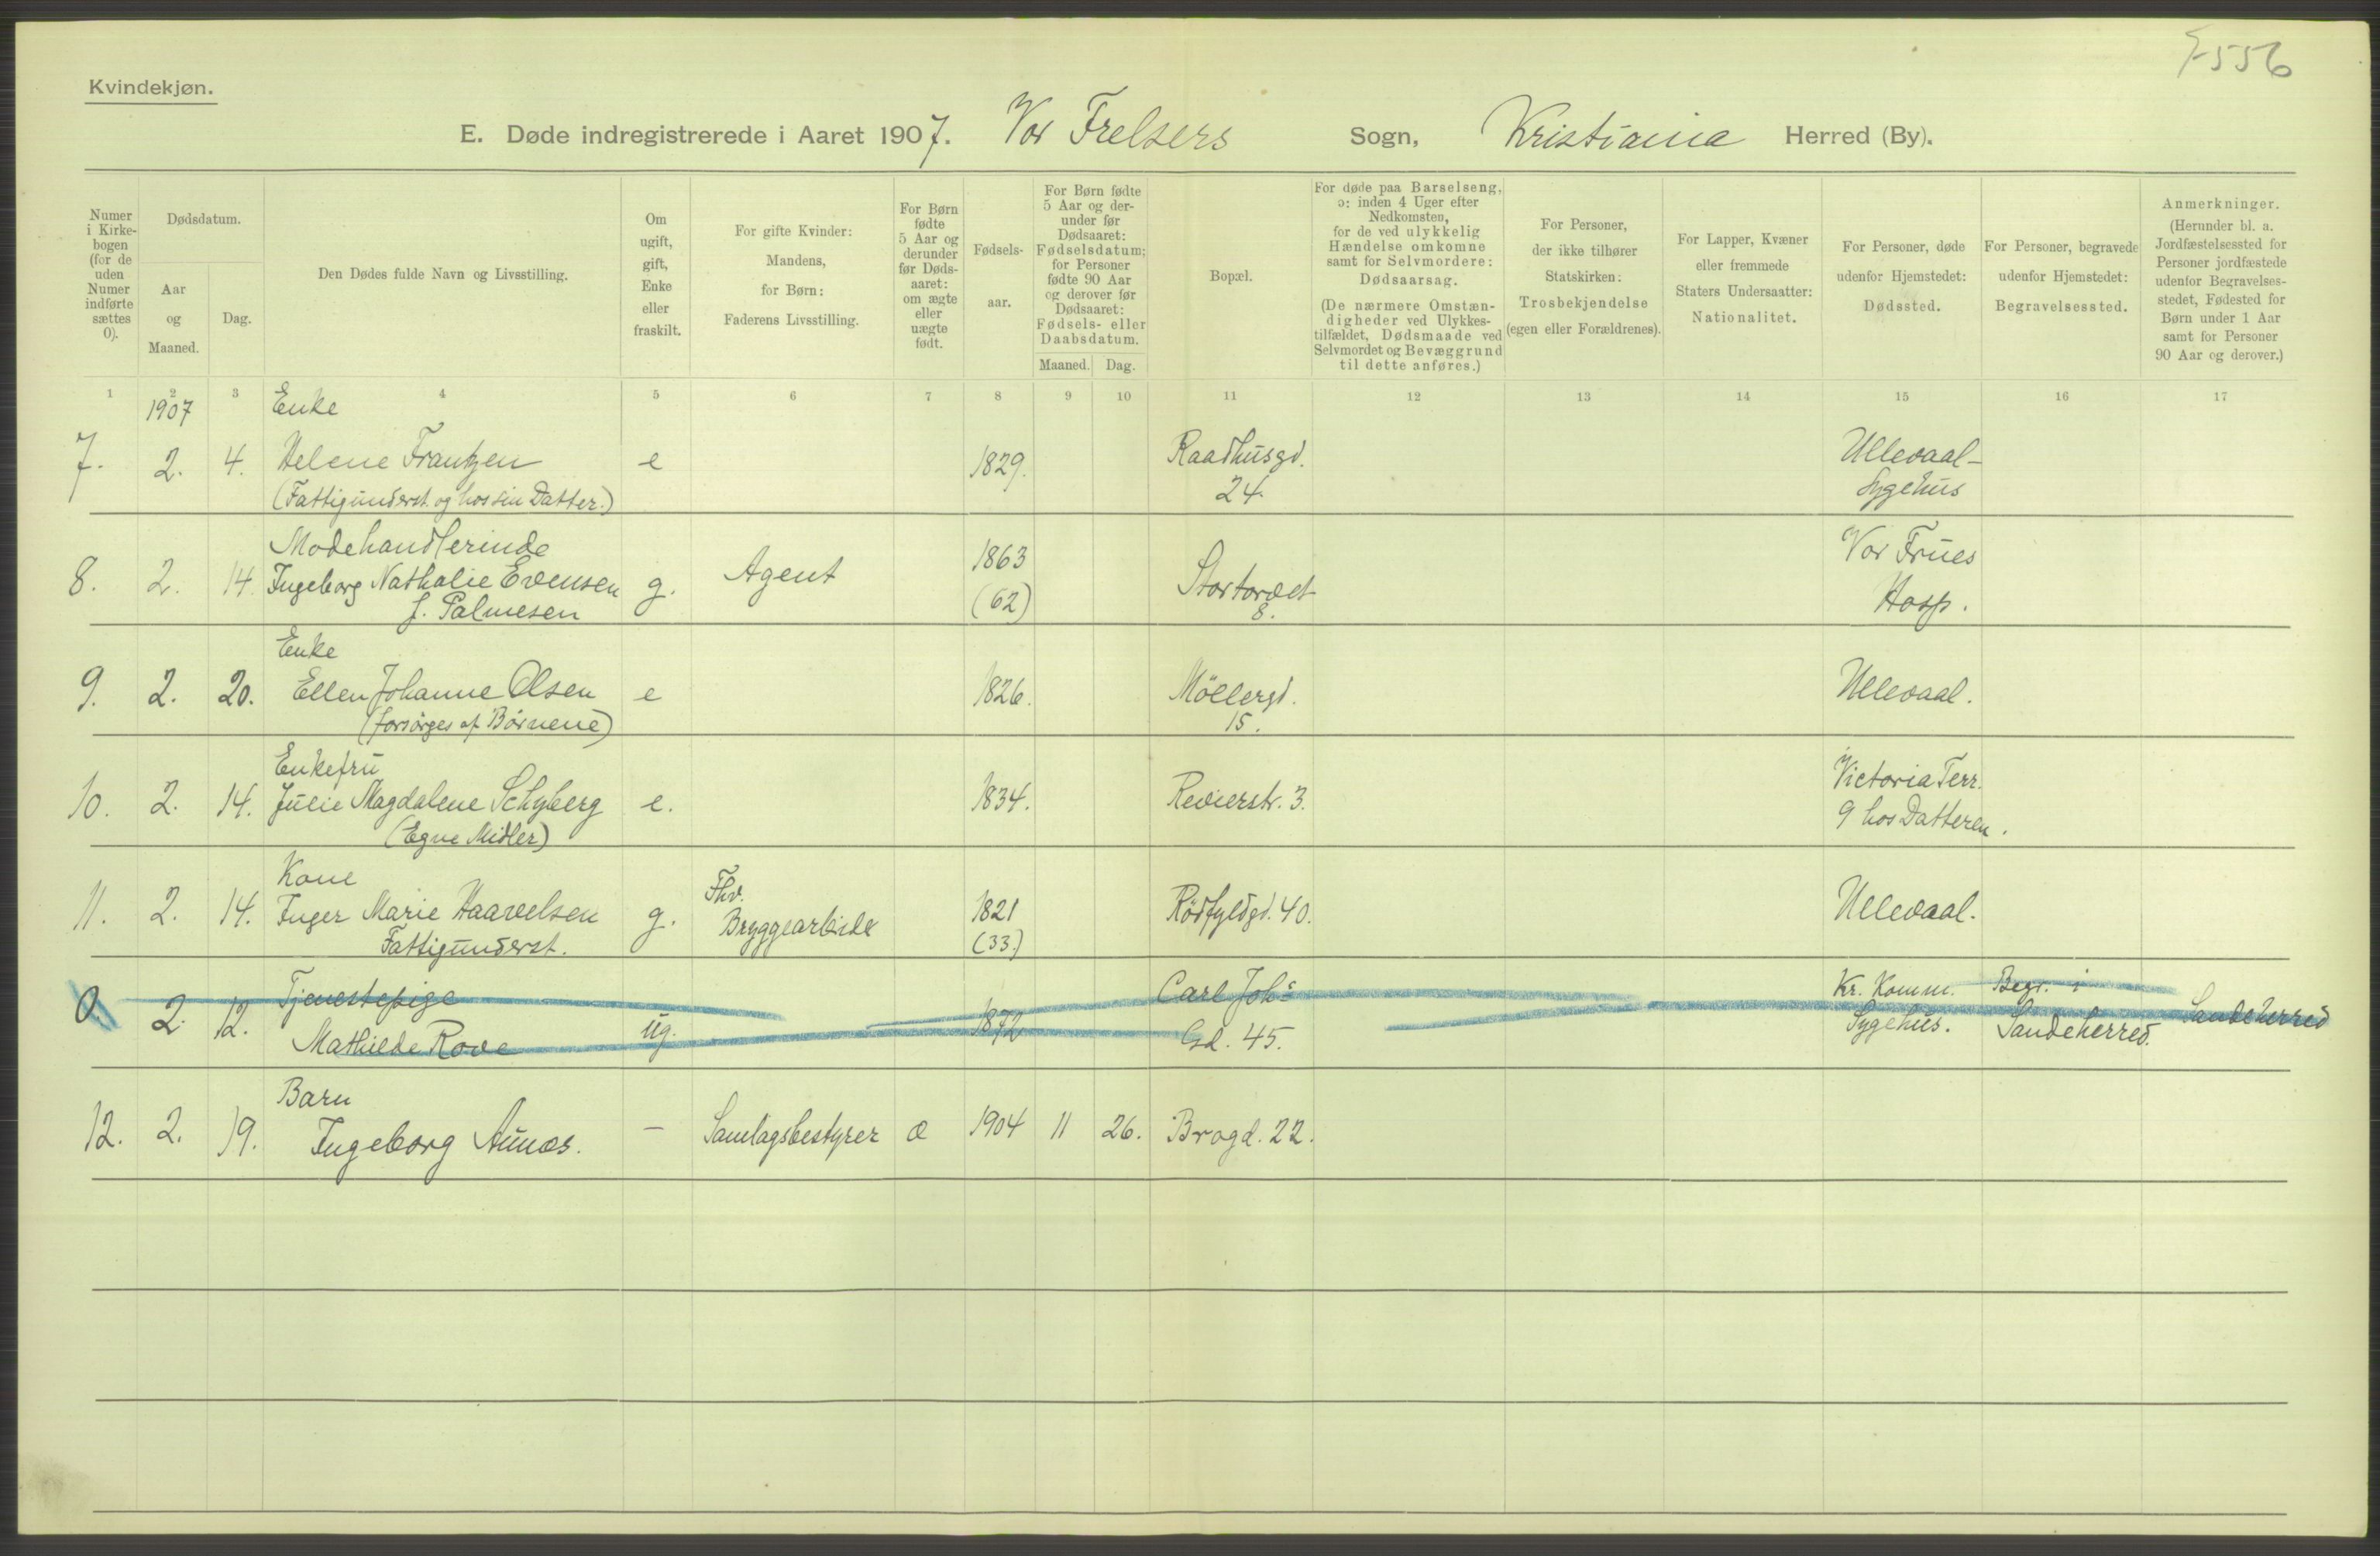 7556
Kvindekjøn.
E. Døde indregistrerede i Aaret 1907. Vor Frelsers Sogn, Kristiania Herred (By).
Numer
i Kirke-
bogen
(for de
uden
Numer
indførte
sættes
0).
Dødsdatum.
Aar
og
Maaned.
Dag.
Den Dødes fulde Navn og Livsstilling.
Om
ugift,
gift,
Enke
eller
fraskilt.
For gifte Kvinder:
Mandens,
for Børn:
Faderens Livsstilling.
For Børn
fødte
5 Aar og
derunder
før Døds-
aaret:
om ægte
eller
uægte
født.
Fødsels-
aar.
For Børn fødte
5 Aar og der-
under før
Dødsaaret:
Fødselsdatum;
for Personer
fødte 90 Aar
og derover før
Dødsaaret:
Fødsels- eller
Daabsdatum.
Maaned. Dag.
Bopæl.
For døde paa Barselseng,
ɔ: inden 4 Uger efter
Nedkomsten,
for de ved ulykkelig
Hændelse omkomne
samt for Selvmordere:
Dødsaarsag.
(De nærmere Omstæn-
digheder ved Ulykkes-
tilfældet, Dødsmaade ved
Selvmordet og Bevæggrund
til dette anføres.)
For Personer,
der ikke tilhører
Statskirken:
Trosbekjendelse
(egen eller Forældrenes).
For Lapper, Kvæner
eller fremmede
Staters Undersaatter:
Nationalitet.
For Personer, døde
udenfor Hjemstedet:
Dødssted.
For Personer, begravede
udenfor Hjemstedet:
Begravelsessted.
Anmerkninger.
(Herunder bl. a.
Jordfæstelsessted for
Personer jordfæstede
udenfor Begravelses-
stedet, Fødested for
Børn under 1 Aar
samt for Personer
90 Aar og derover.)
1 2 3 4 5 6 7 8 9 10 11 12 13 14 15 16 17
1907 Enke
7. 2. 4. Helene Frantzen e 1829. Raadhusgd. Ullevaal-
(Fattigunderst. og hos sin Datter.) 24. Sygehus
Modehandlerinde 1863 Vor Frues
8. 2. 14. Ingeborg Nathalie Evensen g. Agent Stortorvet
f. Palmesen (62) 8. Hosp.
Enke
9. 2. 20. Ellen Johanne Olsen e 1826. Möllergd. Ullevaal.
(forsörges af Börnene) 15.
Enkefru Victoria Terr.
10. 2. 14. Julie Magdalene Schyberg e. 1834. Revierstr. 3. 9 hos Datteren.
(Egne Midler)
Kone Fhv.
11. 2. 14. Inger Marie Haavelsen g. Bryggearbeider 1821 Rödfyldgd. 40. Ullevaal.
Fattigunderst. (33.)
0. Tjenestepige Carl Johs Kr. Komm. Begr. i
2. 12. Mathilde Rove ug. 1872 Gd. 45. Sygehus. Sandeherred. Sandeherred
Barn
12. 2. 19. Ingeborg Aunæs. — Samlagsbestyrer æ 1904 11 26. Brogd. 22.